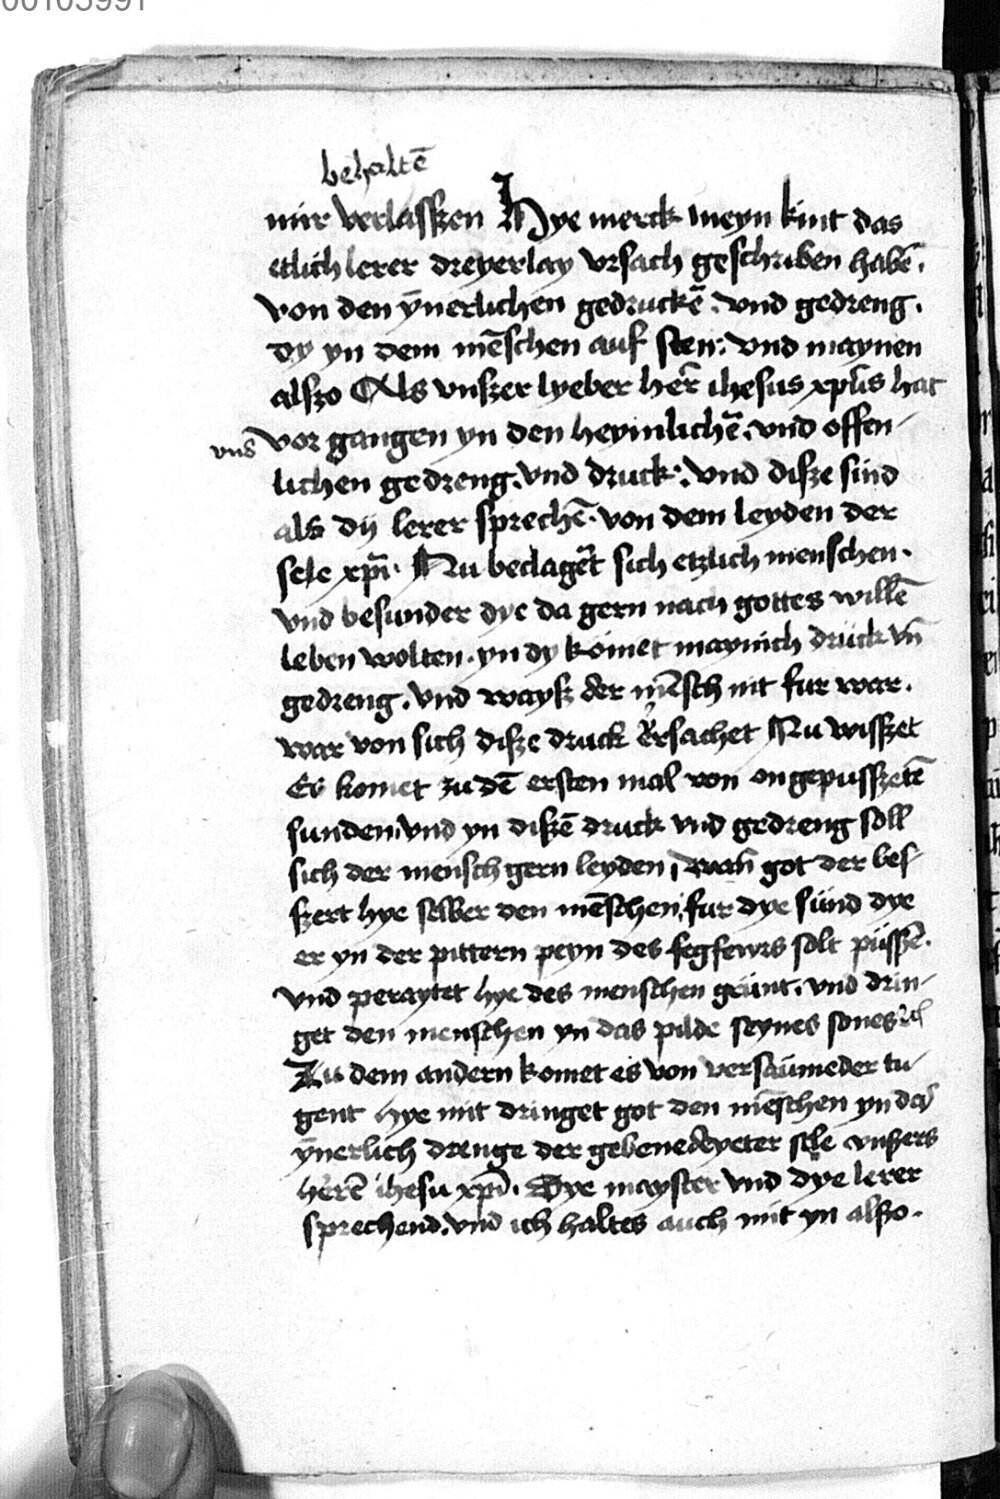 00105991
behaltē
mir verlasszen Hye merck meyn kint das
etlich lerer dreyerlay vrsach geschriben habē.
von den ȳnerlichen gedruckē. vnd gedreng.
dy yn dem mēschen auf sten: vnd maynen
alszo Als vnszer lyeber her̄ ihesus xp̄us hat
vns vor gangen yn den heymlichē. vnd offen-
lichen gedreng. vnd druck: vnd disze sind
als dy lerer sprechē. von dem leyden der
sele xp̄i. Nu beclagēt sich etzlich menschen.
vnd besunder dye da gern nach gottes willē
leben wolten. yn dy kōmet maynich druck vn̄
gedreng. vnd waysz der mēsch nit fur war.
war von sich disze druck vrsachet Nu wisszet
Es komet zu dē ersten mal von ongepusszetē
sunden. vnd yn diszē druck vnd gedreng soll
sich der mensch gern leyden, wan̄ got der bes-
szert hye selber den mēschen, fur dye sünd dye
er yn der pittern peyn des fegfewrs solt püsszē.
vnd peraytet hye des menschen grünt. vnd drin-
get den menschen yn das pilde seynes sones
Zu dem andern komet es von versaümeder tu-
gent hye mit dringet got den mēschen yn das
ȳnerlich drenge der gebenedeyeter sele vnszers
herē ihesu xp̄i. Dye mayster vnd dye lerer
sprechend. vnd ich haltes auch mit yn alszo.